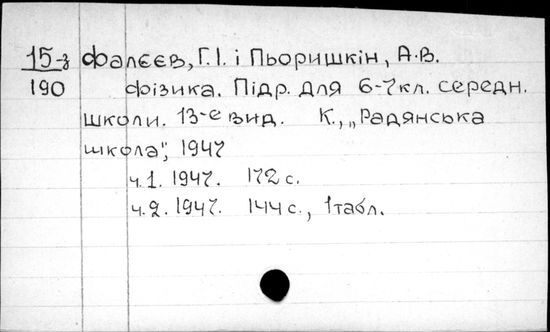 15-з Фалєєв, Г.І. і Пьоришкін, А.В.
190 Фізика. Підр. для 6-7 кл. середн.
школи. 13-е вид. К., „Радянська
школа", 1947
ч.1. 1947. 172 с.
ч.2. 1947. 144 с., 1 табл.